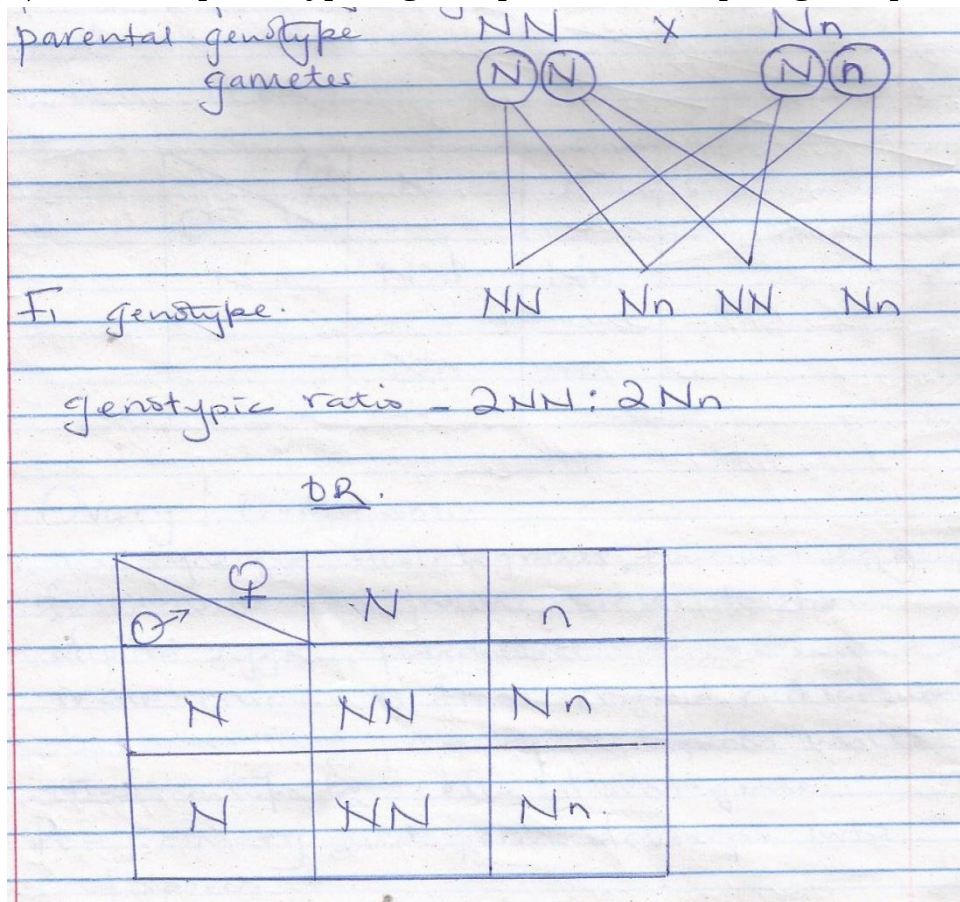 parental genotype NN x Nn
gametes N N N n
F1 genotype. NN Nn NN Nn
genotypic ratio - 2NN: 2Nn
OR.
♂ ♀ N n
N NN Nn
N NN Nn.